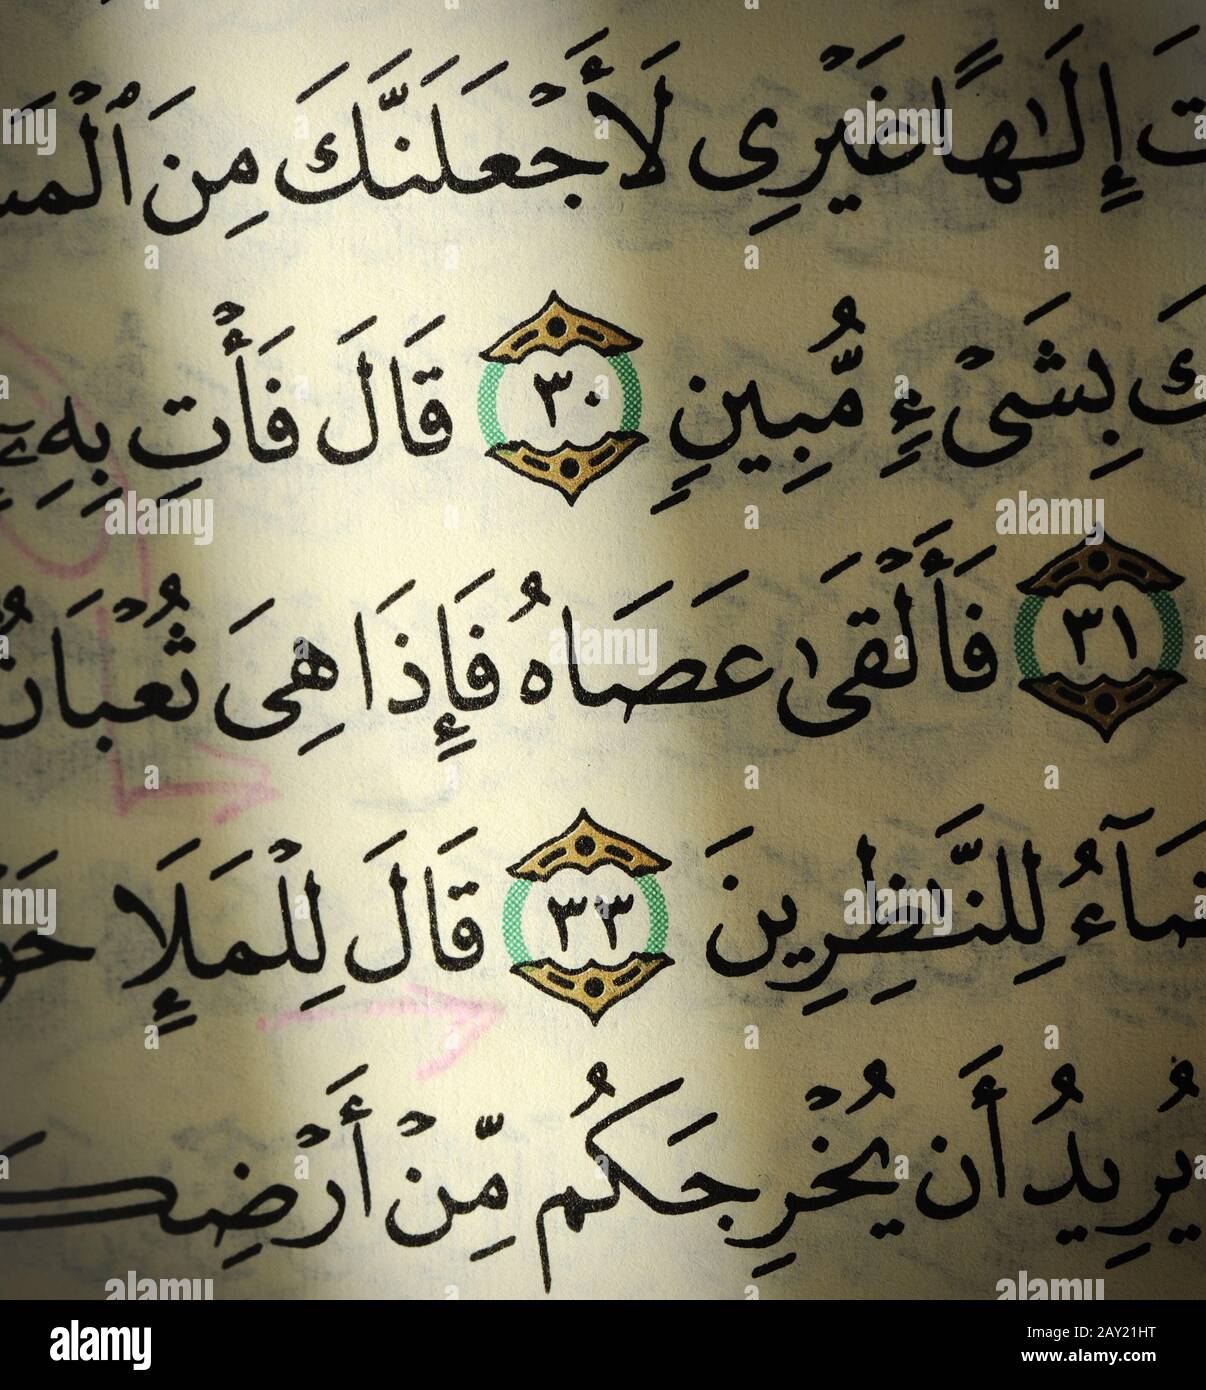 إِلَـٰهًا غَيْرِى لَأَجْعَلَنَّكَ مِنَ ٱلْمَس
كَ بِشَىْءٍ مُّبِينٍ ٣٠ قَالَ فَأْتِ بِهِۦٓ
٣١ فَأَلْقَىٰ عَصَاهُ فَإِذَا هِىَ ثُعْبَانٌ
ضَآءُ لِلنَّـٰظِرِينَ ٣٣ قَالَ لِلْمَلَإِ حَوْ
يُرِيدُ أَن يُخْرِجَكُم مِّنْ أَرْضِكُ
alamy
Image ID: 2AY21HT
www.alamy.com